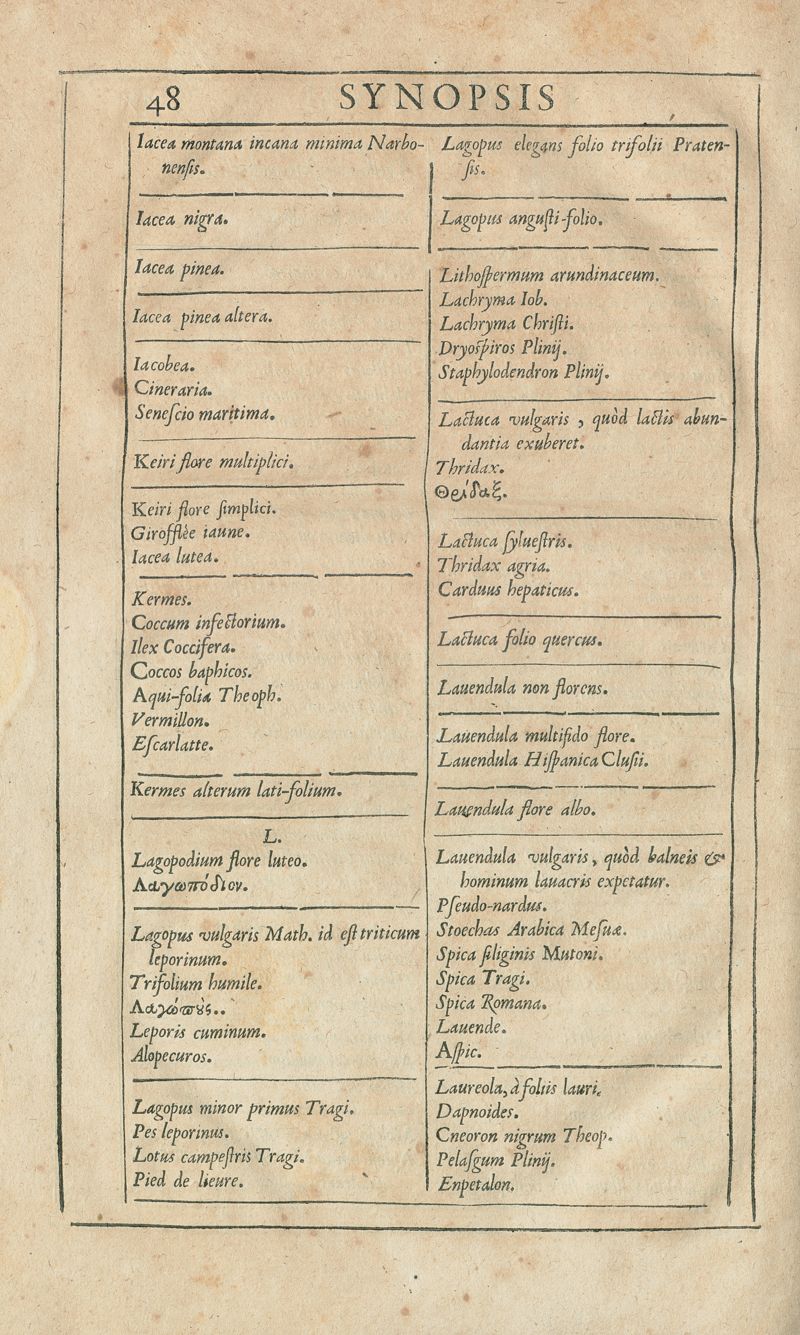 48
SYNOPSIS
Iacea montana incana minima Narbo-
nenſis.
Iacea nigra.
Iacea pinea.
Iacea pinea altera.
Iacobea.
Cineraria.
Seneſcio maritima.
Keiri flore multiplici.
Keiri flore ſimplici.
Girofflèe iaune.
Iacea lutea.
Kermes.
Coccum infectorium.
Ilex Coccifera.
Coccos baphicos.
Aqui-folia Theoph.
Vermillon.
Eſcarlatte.
Kermes alterum lati-folium.
L.
Lagopodium flore luteo.
Λαγωπόδιον.
Lagopus vulgaris Math. id eſt triticum
leporinum.
Trifolium humile.
Λαγώπȣ̀ς..
Leporis cuminum.
Alopecuros.
Lagopus minor primus Tragi.
Pes leporinus.
Lotus campeſtris Tragi.
Pied de lieure.
Lagopus elegans folio trifolii Praten-
ſis.
Lagopus anguſti-folio.
Lithoſpermum arundinaceum.
Lachryma Iob.
Lachryma Chriſti.
Dryoſpiros Plinij.
Staphylodendron Plinij.
Lactuca vulgaris, quòd lactis abun-
dantia exuberet.
Thridax.
Θρίδαξ.
Lactuca ſylueſtris.
Thridax agria.
Carduus hepaticus.
Lactuca folio quercus.
Lauendula non florens.
Lauendula multifido flore.
Lauendula Hiſpanica Cluſii.
Lauendula flore albo.
Lauendula vulgaris, quòd balneis &
hominum lauacris expetatur.
Pſeudo-nardus.
Stoechas Arabica Meſuæ.
Spica ſiliginis Mutoni.
Spica Tragi.
Spica Romana.
Lauende.
Aſpic.
Laureola, à foliis lauri.
Dapnoides.
Cneoron nigrum Theop.
Pelaſgum Plinij.
Enpetalon.